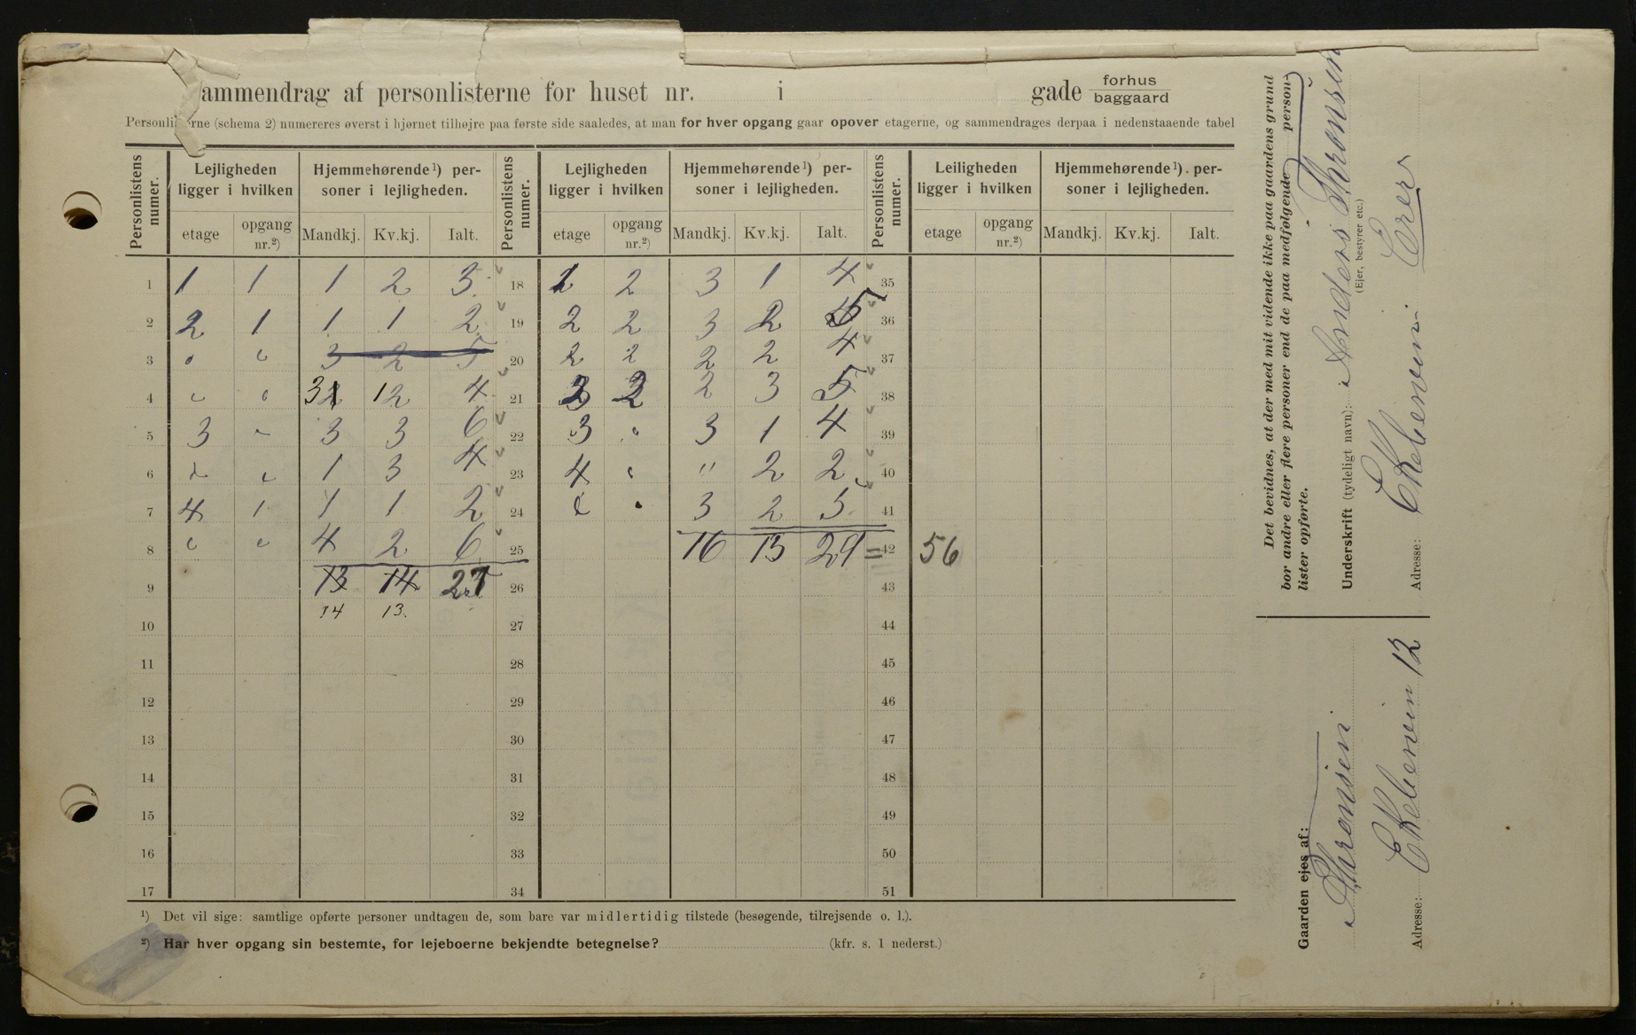 ammendrag af personlisterne for huset nr. i gade forhus baggaard
Personlisterne (schema 2) numereres øverst i hjørnet tilhøjre paa første side saaledes, at man for hver opgang gaar opover etagerne, og sammendrages derpaa i nedenstaaende tabel
Personlistens numer. Lejligheden ligger i hvilken Hjemmehørende¹) personer i lejligheden. Personlistens numer. Lejligheden ligger i hvilken Hjemmehørende¹) personer i lejligheden. Personlistens numer. Leiligheden ligger i hvilken Hjemmehørende¹). personer i lejligheden.
etage opgang nr.²) Mandkj. Kv.kj. Ialt. etage opgang nr.²) Mandkj. Kv.kj. Ialt. etage opgang nr.²) Mandkj. Kv.kj. Ialt.
1 1 1 1 2 3 18 1 2 3 1 4 35
2 2 1 1 1 2 19 2 2 3 2 5 36
3 " " 3 2 5 20 2 2 2 2 4 37
4 " " 3 1 4 21 3 2 2 3 5 38
5 3 " 3 3 6 22 3 " 3 1 4 39
6 " " 1 3 4 23 4 " " 2 2 40
7 4 1 1 1 2 24 " " 3 2 5 41
8 " " 4 2 6 25 16 13 29 = 42 56
9 13 14 27 26 43
14 13.
10 27 44
11 28 45
12 29 46
13 30 47
14 31 48
15 32 49
16 33 50
17 34 51
¹) Det vil sige: samtlige opførte personer undtagen de, som bare var midlertidig tilstede (besøgende, tilrejsende o. l.).
²) Har hver opgang sin bestemte, for lejeboerne bekjendte betegnelse? (kfr. s. 1 nederst.)
Det bevidnes, at der med mit vidende ikke paa gaardens grund
bor andre eller flere personer end de paa medfølgende person-
lister opførte.
Underskrift (tydeligt navn): Anders Thronsen
(Ejer, bestyrer etc.)
Adresse: Ekebervein Eier
Gaarden ejes af:
Thronsen
Adresse: Ekebervein 12